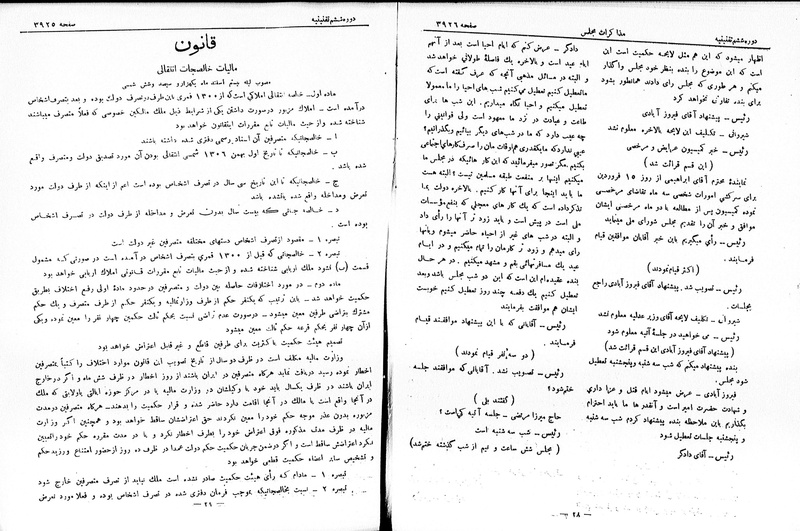 دوره ششم تقنینیه مذاکرات مجلس صفحه ۳۹۲۶
اظهار میشود که این هم مثل لایحه حکمیت است این
است که این موضوع را بنده بنظر خود مجلس واگذار
میکنم و هر طوری که مجلس رأی دادند همانطور بشود
برای بنده تفاوتی نخواهد کرد
رئیس ـ پیشنهاد آقای فیروز آبادی
شیروانی ـ تکلیف این لایحه بالاخره معلوم نشد
رئیس ـ خبر کمیسیون عرایض و مرخصی
(این قسم قرائت شد)
نماینده محترم آقای ابراهیمی از روز ۱۵ فروردین
برای سرکشی امورات شخصی سه ماه تقاضای مرخصی
نموده کمیسیون پس از مطالعه با دو ماه مرخصی ایشان
موافق و خبر آن را تقدیم مجلس شورای ملی مینماید
رئیس ـ رأی میگیریم باین خبر آقایان موافقین قیام
فرمایند.
(اکثر قیام نمودند)
رئیس ـ تصویب شد. پیشنهاد آقای فیروز آبادی راجع
بجلسات.
شیروانی ـ تکلیف لایحه آقای وزیر عدلیه معلوم نشد
رئیس ـ می خواهید در جلسهٔ آتیه معلوم شود
(پیشنهاد آقای فیروز آبادی این قسم قرائت شد)
بنده پیشنهاد میکنم که شب سه شنبه و پنجشنبه تعطیل
شود مجلس.
فیروز آبادی ـ عرض میشود ایام قتل و عزا داری
و شهادت حضرت امیر است و آنقدر ها ما باید احترام
بگذاریم باین ملاحظه بنده پیشنهاد کردم شب سه شنبه
و پنجشنبه جلسات تعطیل شود
رئیس ـ آقای دادگر
دادگر ـ عرض کنم که ایام احیا است بعد از آنهم
ایام عید است و بالاخره یک فاصلهٔ طولانی خواهد شد
و البته در مسائل مذهبی آنچه که عرف گفته است که
ما تعطیل کنیم تعطیل می کنیم شب های احیا را ما معمولا
تعطیل میکنیم و احیا نگاه میداریم. این شب ها برای
طاعت و عبادت در نزد ما معهود است ولی قوانینی را
چه عیب دارد که ما در شب های دیگر بیائیم و بگذرانیم؟
میکنیم اینها بر منفعت طبقه مسلمین نیست؟ البته هست
ما باید اینجا برای آنها کار کنیم. بالاخره دولت بما
ملی است در پیش است و باید زود تر آنها را رأی داد
و البته در شب های غیر از احیاء حاضر میشوم و باینها
رأی میدهم و زود تر کارمان را تمام میکنیم و در ایام
عید یک مسافرتهائی بقم و مشهد میکنیم. در هر حال
بنده عقیده ام این است که این دو شب مجلس باشد و بعد
تعطیل کنیم یک دفعه چند روز تعطیل کنیم خوبست
ایشان هم موافقت بفرمایند
رئیس ـ آقایانی که با این پیشنهاد موافقند قیام
فرمایند.
(دو سه نفر قیام نمودند)
رئیس ـ تصویب نشد. آقایانی که موافقند جلسه
ختم شود؟
(گفتند بلی)
حاج میرزا مرتضی ـ جلسه آتیه کی است؟
رئیس ـ شب سه شنبه است
(مجلس شش ساعت و نیم از شب گذشته ختم شد)
ـ ۲۸ ـ
دوره ششم تقنینیه صفحه ۳۹۲۵
قانون
مالیات خالصجات انتقالی
مصوب لیله بیستم اسفند ماه یکهزار و سیصد و شش شمسی
ماده اول ـ خالصه انتقالی املاکی است که از ۱۳۰۰ قمری باین طرف در تصرف دولت بوده و بعد بتصرف اشخاص
درآمده است ـ املاک مزبور در صورت داشتن یکی از شرایط ذیل ملک مالکین خصوصی که فعلا متصرف میباشند
شناخته شده و از حیث مالیات تابع مقررات این قانون خواهد بود
ا ـ خالصجاتیکه متصرفین آن اسناد رسمی دفتری شده داشته باشند
ب ـ خالصجاتیکه تا تاریخ اول بهمن ۱۳۰۶ شمسی انتقالی بودن آن مورد تصدیق دولت و متصرف واقع
شده باشد.
ج ـ خالصجاتیکه تا این تاریخ سی سال در تصرف اشخاص بوده است اعم از اینکه از طرف دولت مورد
تعرض و مداخله واقع شده یا نشده باشد
د ـ خالصه جاتی که بیست سال بدون تعرض و مداخله از طرف دولت در تصرف اشخاص
بوده است.
تبصره ۱ ـ مقصود از تصرف اشخاص دستهای مختلفه متصرفین غیر دولت است
تبصره ۲ ـ خالصجاتی که قبل از ۱۳۰۰ قمری بتصرف اشخاص درآمده است در صورتی که مشمول
قسمت (ب) نشود ملک اربابی شناخته شده و از حیث مالیات تابع مقررات قانونی املاک اربابی خواهد بود
ماده دوم ـ در مورد اختلافات حاصله بین دولت و متصرفین در حدود مادهٔ اولی رفع اختلاف بطریق
حکمیت خواهد شد ـ باین ترتیب که یکنفر حکم از طرف وزارت مالیه و یکنفر حکم از طرف متصرف و یک حکم
مشترک بتراضی طرفین معین میشود ـ در صورت عدم تراضی نسبت بحکم ثالث حکمین چهار نفر را معین نموده و یکی
از آن چهار نفر بحکم قرعه حکم ثالث معین میشود
تصمیم هیئت حکمیت با کثریت برای طرفین قاطع و غیر قابل اعتراض خواهد بود
وزارت مالیه مکلف است در ظرف دو سال از تاریخ تصویب این قانون موارد اختلاف را کتباً بمتصرفین
اخطار نموده رسید دریافت نماید هرگاه متصرفین در ایران باشند از روز اخطار در ظرف شش ماه و اگر در خارج
ایران باشند در ظرف یکسال باید خود یا وکیلشان در وزارت مالیه یا در مرکز حوزه ایالتی یا ولایتی که ملک
در آنجا واقع است یا مالک در آنجا اقامت دارد حاضر شده و قرار حکمیت را بدهند ـ هرگاه متصرفین در مدت
مزبوره بدون عذر موجه حکم خود را معین نکردند حق اعتراضشان ساقط خواهد بود و همچنین اگر وزارت
مالیه در ظرف مدت مذکوره فوق اعتراض خود را بطرف اخطار نکرد و یا در مدت مقرره حکم خود را تعیین
نکرد اعتراضش ساقط است و اگر در ضمن جریان حکمیت حکم دولت عمداً در ظرف ده روز از حضور امتناع ورزید حکم
و تشخیص سایر اعضاء حکمیت قطعی خواهد بود
تبصره ۱ ـ مادام که رأی هیئت حکمیت صادر نشده است ملک نباید از تصرف متصرفین خارج شود
تبصره ۲ ـ نسبت بخالصجاتیکه بموجب فرمان دفتری شده در تصرف اشخاص بوده و فعلا مورد تعرض
ـ ۲۹ ـ